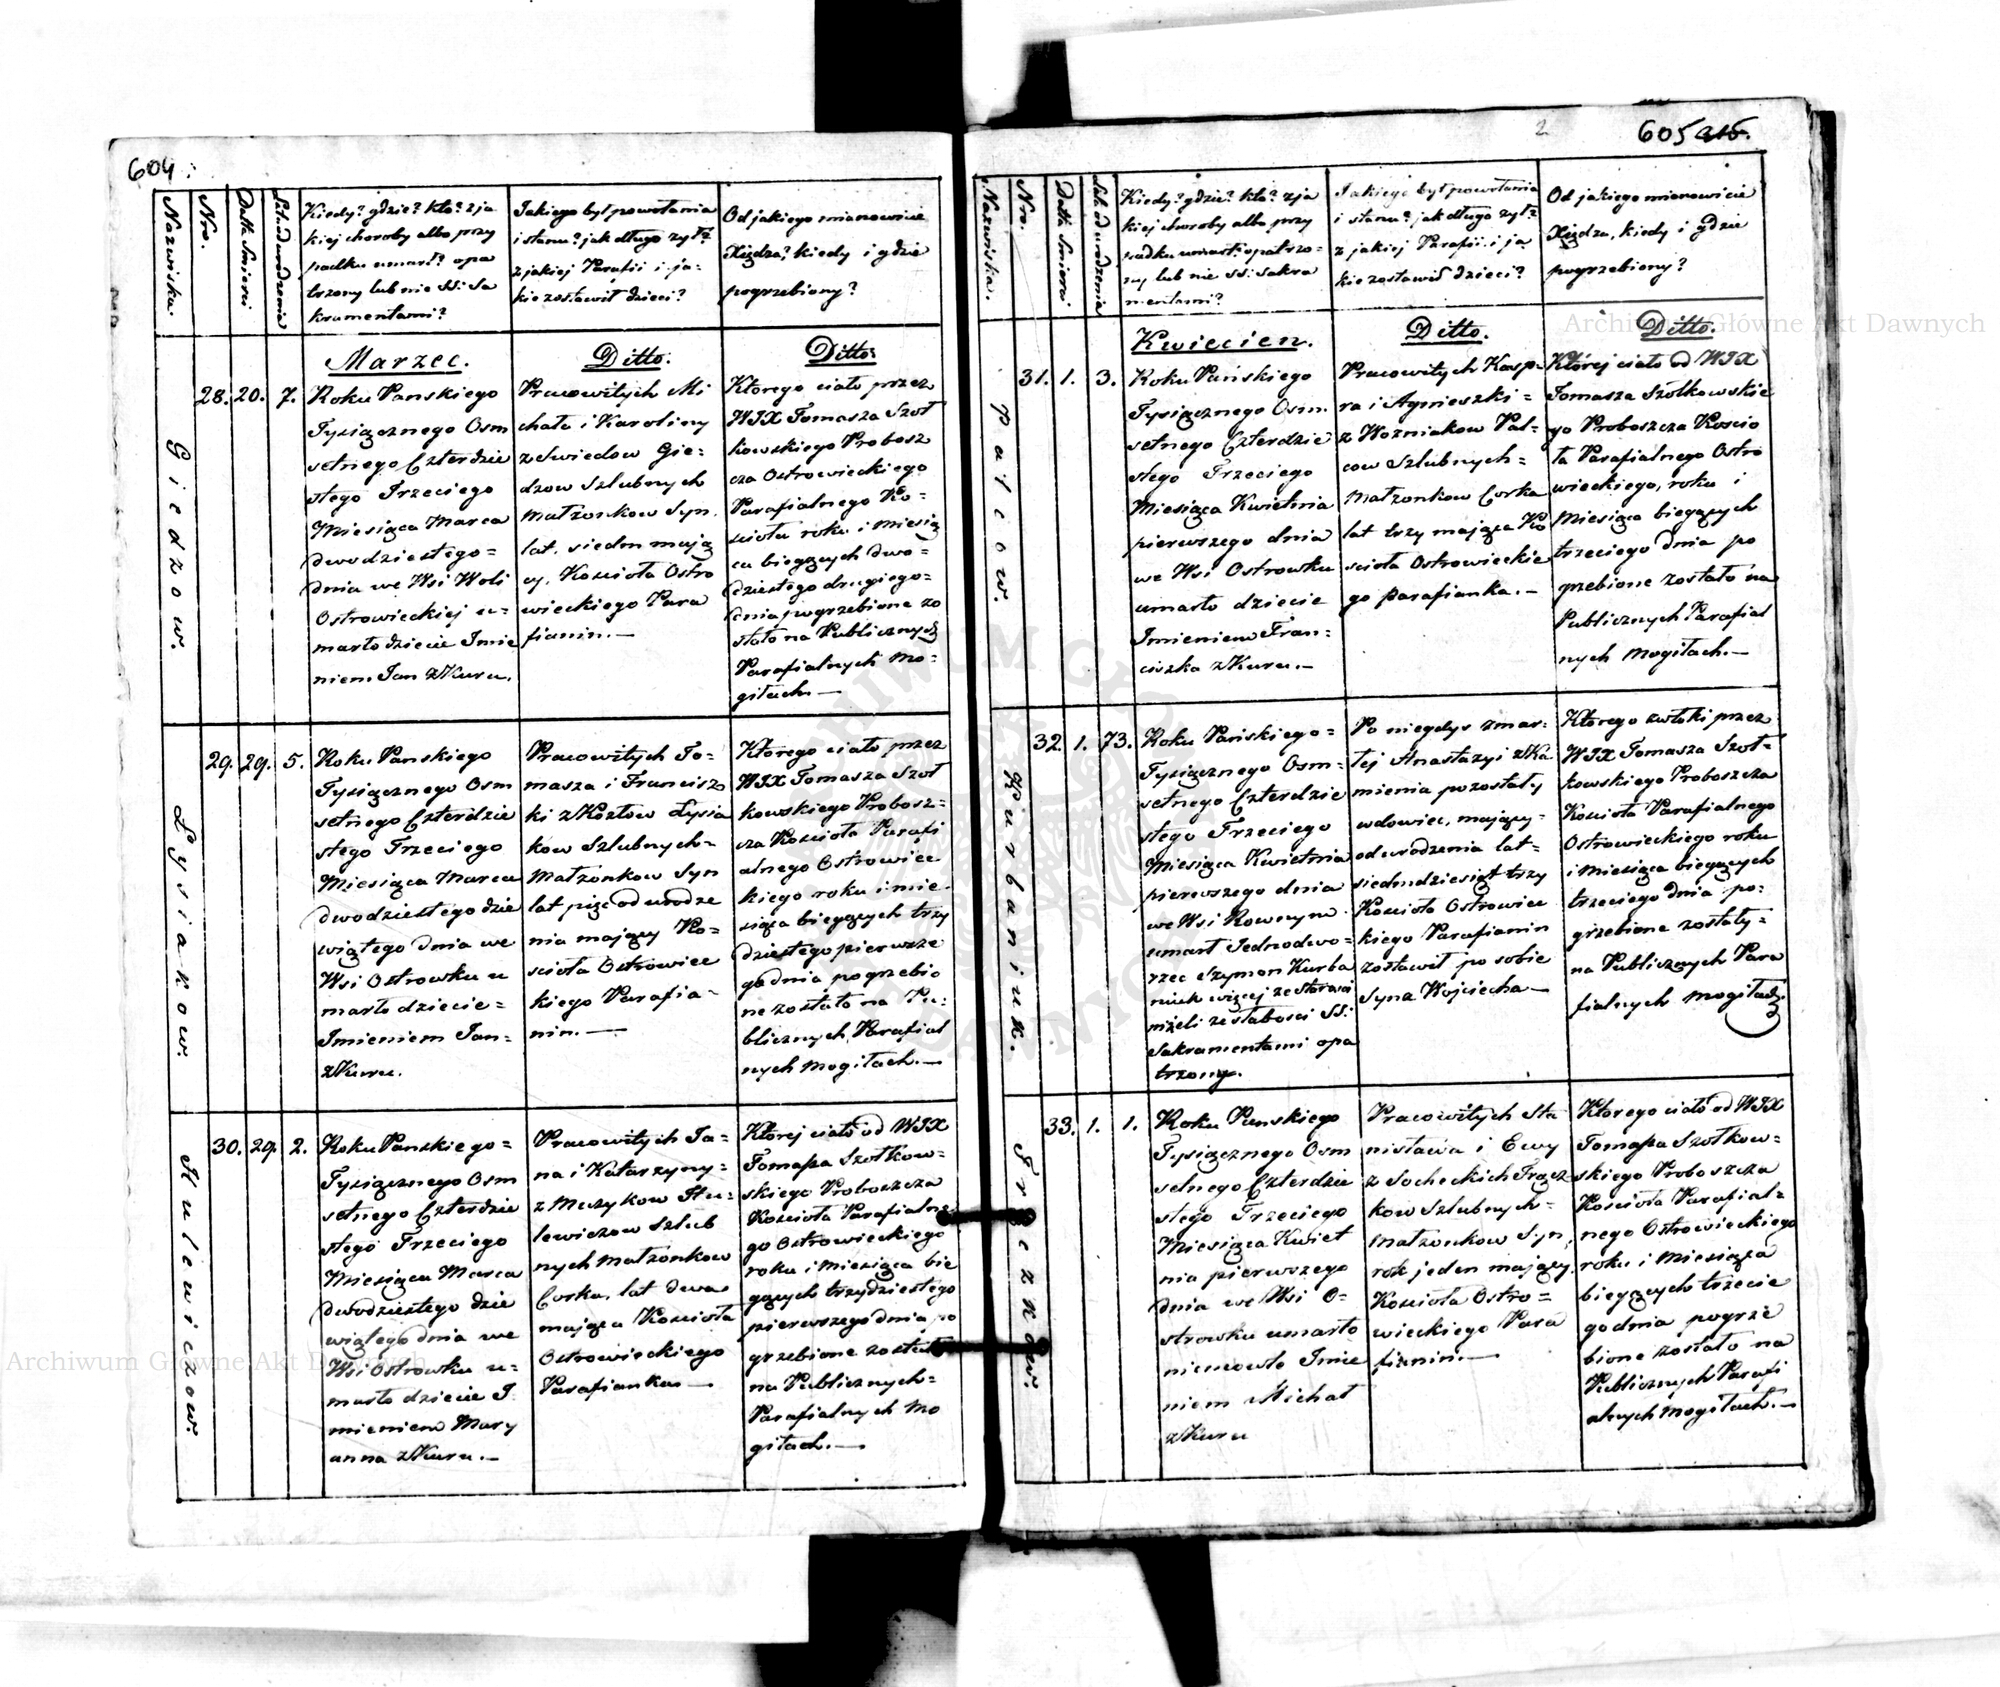 604
Nazwiska.
Nro.
Data Smierci
Lat. od urodzenia
Kiedy? gdzie? kto? z ja
kiej choroby albo przy
padku umarł? opa
trzony lub nie SS: Sa
kramentami?
Jakiego był powołania
i stanu? jak długo żył?
z jakiej Parafii i ja-
kie zostawił dzieci?
Od jakiego mianowicie
Xiędza? kiedy i gdzie
pogrzebiony?
Giedzow.
28. 20. 7.
Marzec.
Roku Panskiego
Tysiącznego Osm
setnego Czterdzie
stego Trzeciego
Miesiąca Marca
dwudziestego =
dnia we Wsi Woli
Ostrowieckiej u-
marło dziecie Imie
niem Jan z Kuru.
Ditto.
Pracowitych Mi
chała i Karoliny
z Swiedow Gie-
dzow Szlubnych
Małżonkow Syn.
lat. siedm mają
cy. Kościoła Ostro
wieckiego Para
fianin. —
Ditto:
Ktorego ciało przez
WJX Tomasza Szoł
kowskiego Probosz
cza Ostrowieckiego
Parafialnego Ko-
scioła roku i miesią
ca biezących dwu-
dziestego drugiego=
dnia pogrzebione zo
stało na Publicznych
Parafialnych Mo-
giłach. —
Łysiakow.
29. 29. 5.
Roku Panskiego
Tysiącznego Osm
setnego Czterdzie
stego Trzeciego
Miesiąca Marca
dwudziestego dzie
wiątego dnia we
Wsi Ostrowku u
marło dziecie =
Imieniem Jan =
z Kuru.
Pracowitych To-
masza i Francisz
ki z Kozłow Łysia
kow Szlubnych =
Małzonkow Syn
lat pięc od urodze
nia mający Ko-
scioła Ostrowiec
kiego Parafia-
nin. —
Ktorego ciało przez
WJX Tomasza Szoł
kowskiego Probosz-
cza Kościoła Parafi
alnego Ostrowiec
kiego roku i mie-
siąca biegących trzy
dziestego pierwsze
go dnia pogrzebio
ne zostało na Pu-
blicznych Parafial
nych Mogiłach. —
Hulewiczow.
30. 29. 2.
Roku Panskiego =
Tysiącznego Osm
setnego Czterdzie
stego Trzeciego
Miesiąca Marca
dwudziestego dzie
wiątego dnia we
Wsi Ostrowku u-
marło dziecie I
mieniem Mary
anna z Kuru. —
Pracowitych Ja-
na i Katarzyny =
z Muzykow Hu-
lewiczow Szlub
nych Małżonkow
Corka, lat dwa
mająca Kościoła
Ostrowieckiego
Parafianka. —
Której ciało od WJX
Tomasza Szołkow-
skiego Proboszcza
Kościoła Parafialne
go Ostrowieckiego
roku i Miesiąca bie
gących trzydziestego
pierwszego dnia po
grzebione zostało
na Publicznych =
Parafialnych Mo
giłach. —
2
605
Nazwiska.
Nro.
Data Smierci
Lat. od urodzenia
Kiedy? gdzie? kto? z ja
kiej choroby albo przy
padku umarł? opatrzo-
ny lub nie SS: Sakra
mentami?
Jakiego był powołania
i stanu? jak długo żył?
z jakiej Parafii i ja
kie zostawił dzieci?
Od jakiego mianowicie
Xiędza, kiedy i gdzie
pogrzebiony?
Palcow.
31. 1. 3.
Kwiecien.
Roku Pańskiego
Tysiącznego Osm.
setnego Czterdzie
stego Trzeciego
Miesiąca Kwietnia
pierwszego dnia
we Wsi Ostrowku
umarło dziecie
Imieniem Fran=
ciszka z Kuru. —
Ditto.
Pracowitych Kasp-
ra i Agnieszki =
z Wozniakow Pal-
cow Szlubnych =
Małzonkow Corka
lat trzy mająca Ko
scioła Ostrowieckie
go Parafianka. —
Ditto.
Której ciało od WJX
Tomasza Szołkowskie
go Proboszcza Koscio
ła Parafialnego Ostro
wieckiego, roku i
Miesiąca biegących
trzeciego dnia po
grzebione zostało na
Publicznych Parafial
nych Mogiłach. —
Kurbaniuk.
32. 1. 73.
Roku Pańskiego =
Tysiącznego Osm=
setnego Czterdzie
stego Trzeciego
Miesiąca Kwietnia
pierwszego dnia
we Wsi Rownym
umarł Jednodwo-
rzec Szymon Kurba
niuk więcej ze starosci
niżeli ze słabosci SS:
Sakramentami opa
trzony.
Po niegdys zmar-
łej Anastazyi z Ka
mienia pozostały
wdowiec, mający =
od urodzenia lat =
siedmdziesiąt trzy
Kościoła Ostrowiec
kiego Parafianin
zostawił po sobie
Syna Wojciecha —
Ktorego zwłoki przez
WJX Tomasza Szoł-
kowskiego Proboszcza
Kościoła Parafialnego
Ostrowieckiego roku
i Miesiąca biegących
trzeciego dnia po-
grzebione zostały =
na Publicznych Para
fialnych Mogiłach.
Frączkow.
33. 1. 1.
Roku Panskiego
Tysiącznego Osm
setnego Czterdzie
stego Trzeciego
Miesiąca Kwiet
nia pierwszego
dnia we Wsi O=
strowku umarło
niemowle Imie
niem Michał
z Kuru
Pracowitych Sta
nisława i Ewy
z Socheckich Frącz
kow Szlubnych =
Małzonkow Syn,
rok jeden mający.
Kościoła Ostro =
wieckiego Para
fianin. —
Ktorego ciało od WJX
Tomasza Szołkow=
skiego Proboszcza
Kościoła Parafial=
nego Ostrowieckiego
roku i Miesiąca
biegących trzecie
go dnia pogrze
bione zostało na
Publicznych Parafi
alnych Mogiłach. —
Archiwum Główne Akt Dawnych
Archiwum Główne Akt Dawnych